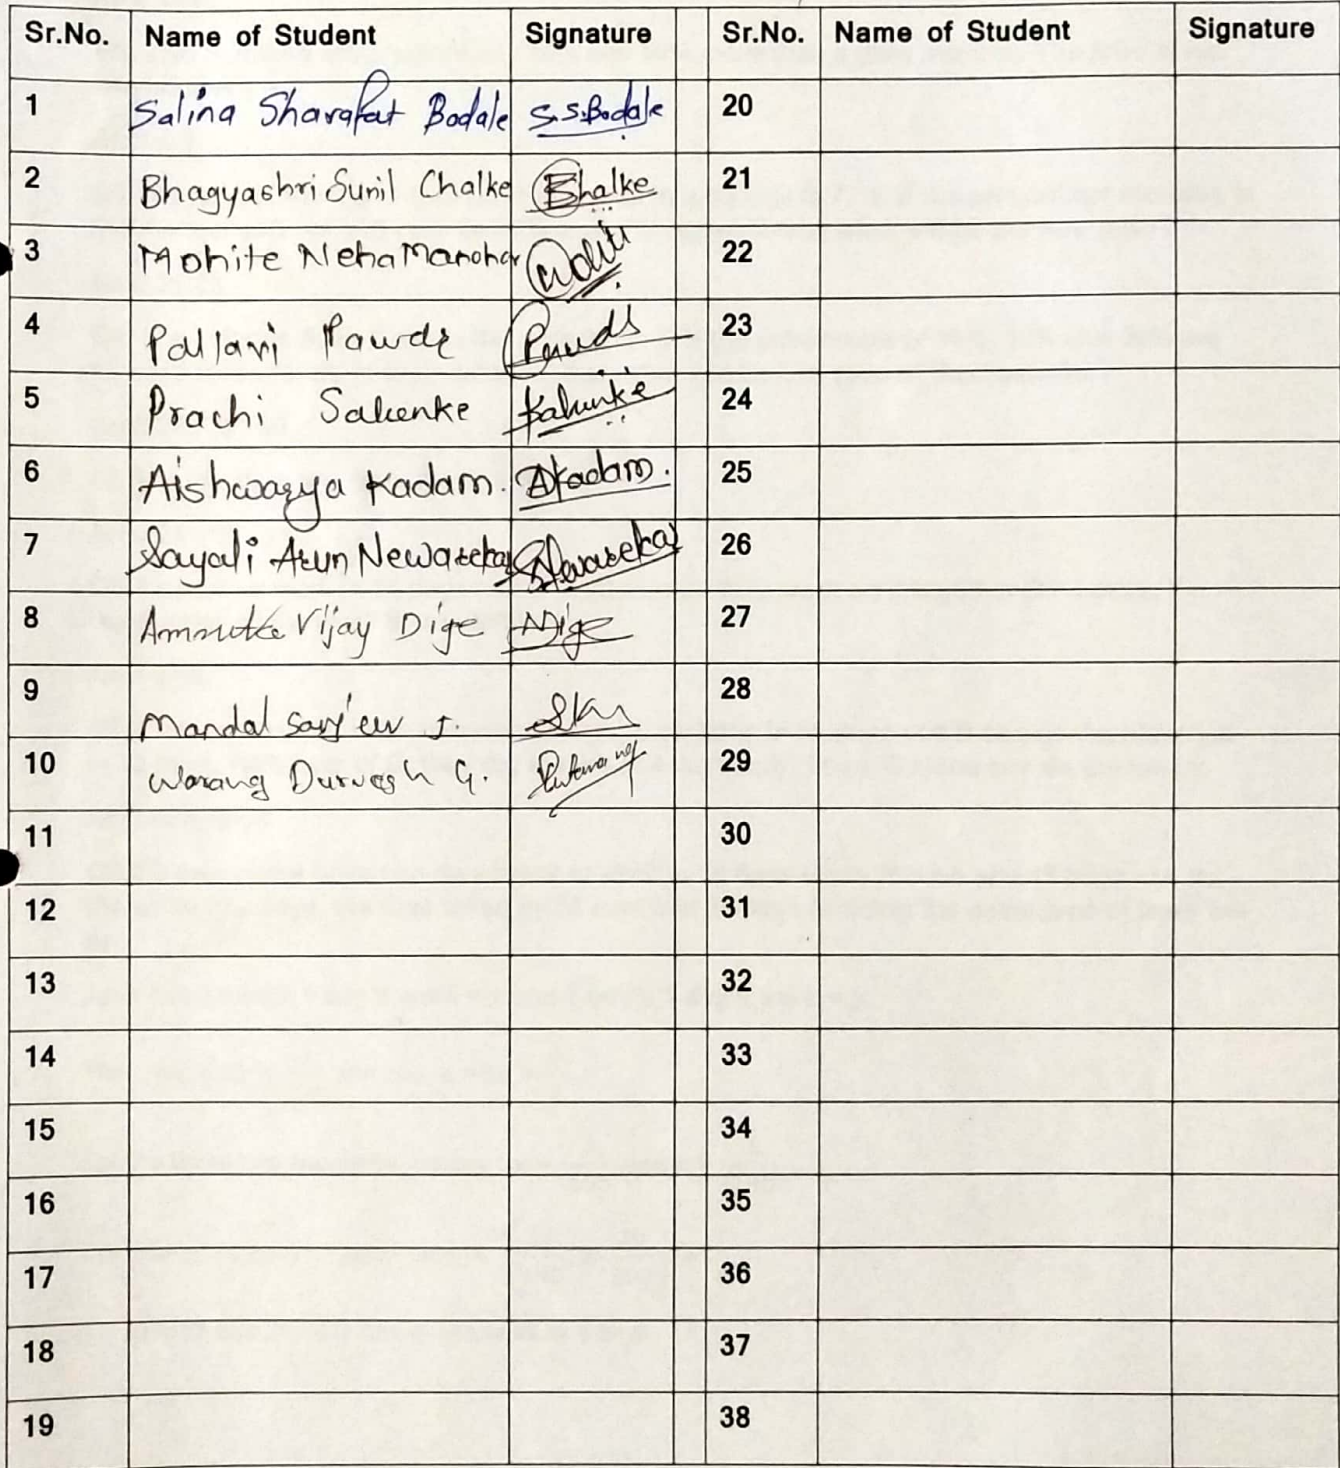 Sr.No. Name of Student Signature Sr.No. Name of Student Signature
1 Salina Sharafat Bodale S.S.Bodale 20
2 Bhagyashri Sunil Chalke Bhalke 21
3 Mohite Neha Manohar 22
4 Pallavi 23
5 Prachi Salunke 24
6 Aishwarya Kadam. AKadam. 25
7 Sayali Arun Newarekar SNewarekar 26
8 Amruta Vijay Dige Dige 27
9 Mandal J. 28
10 Warang Durvesh G. 29
11 30
12 31
13 32
14 33
15 34
16 35
17 36
18 37
19 38